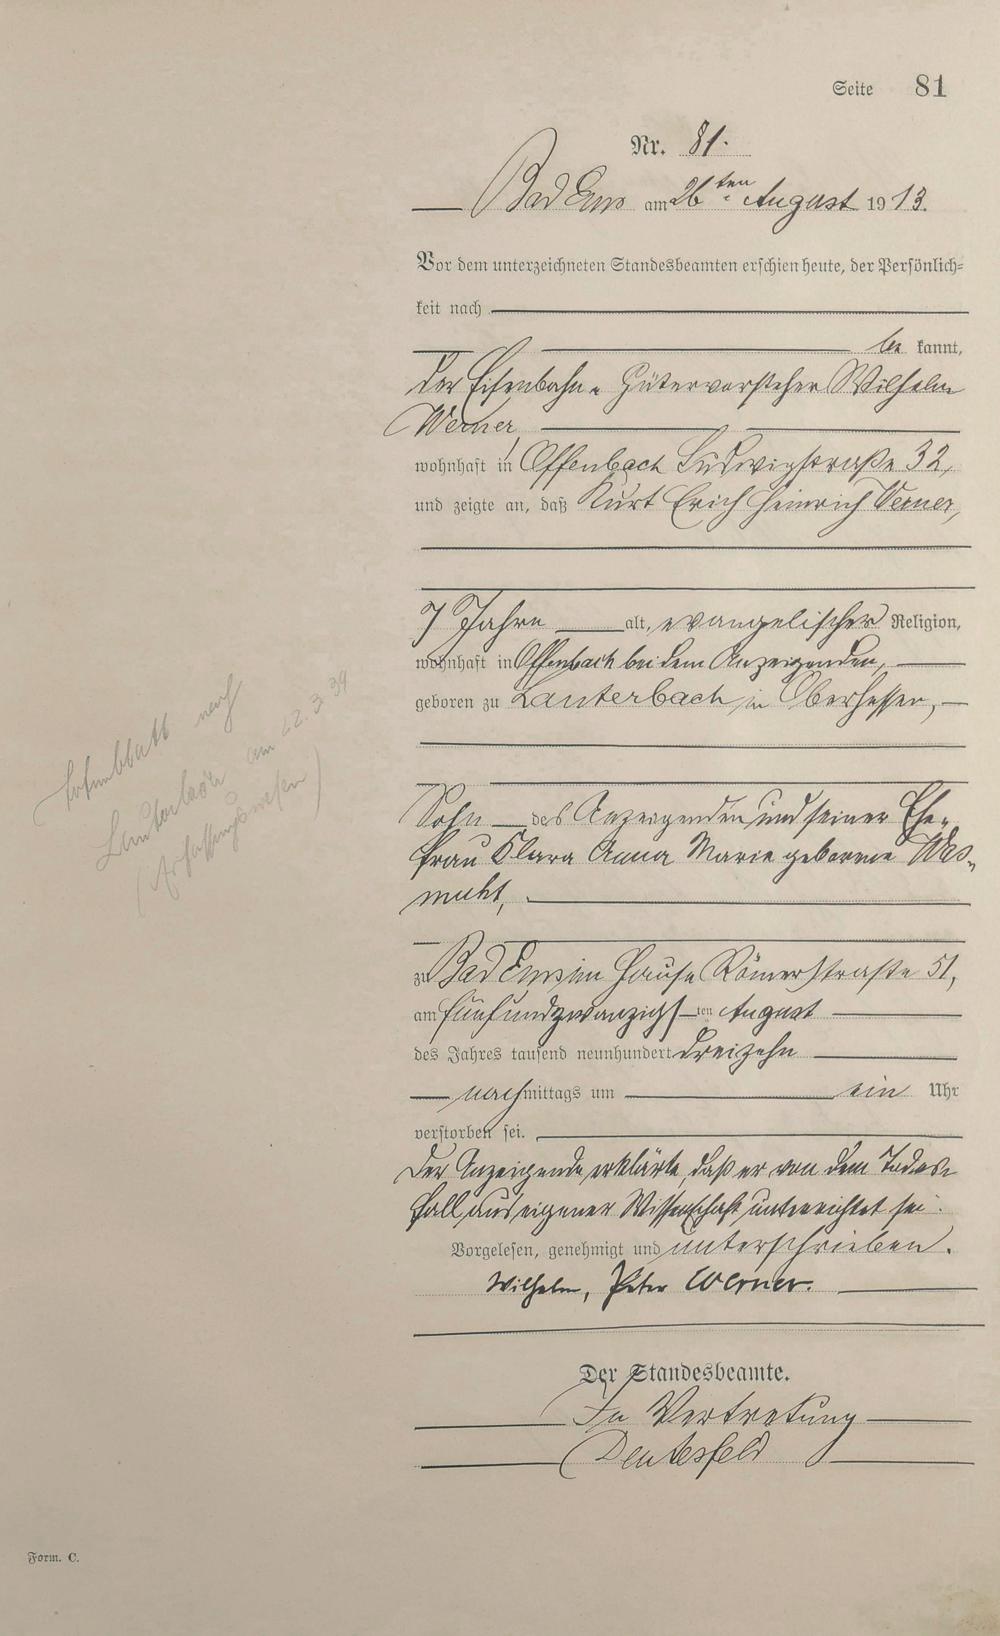 Seite 81
Nr. 81.
Bad Ems am 26ten August 1913.
Vor dem unterzeichneten Standesbeamten erschien heute, der Persönlich-
keit nach
be kannt,
der Eisenbahn-Gütervorsteher Wilhelm
Werner
wohnhaft in Offenbach Ludwigstraße 32,
und zeigte an, daß Kurt Erich Heinrich Werner,
7 Jahre alt, evangelischer Religion,
wohnhaft in Offenbach bei dem Anzeigenden,
geboren zu Lauterbach in Oberhessen,
Sohn des Anzeigenden und seiner Ehe-
frau Klara Anna Marie geborene Was-
muht,
zu Bad Ems im Hause Römerstraße 51,
am fünfundzwanzigsten August
des Jahres tausend neunhundert dreizehn
nachmittags um ein Uhr
verstorben sei.
Der Anzeigende erklärte, daß er von dem Todes-
fall aus eigener Wissenschaft unterrichtet sei.
Vorgelesen, genehmigt und unterschrieben.
Wilhelm, Peter Werner.
Der Standesbeamte.
In Vertretung
nach
Lauterbach am 22.3.39
(Erfassungswesen)
Form. C.